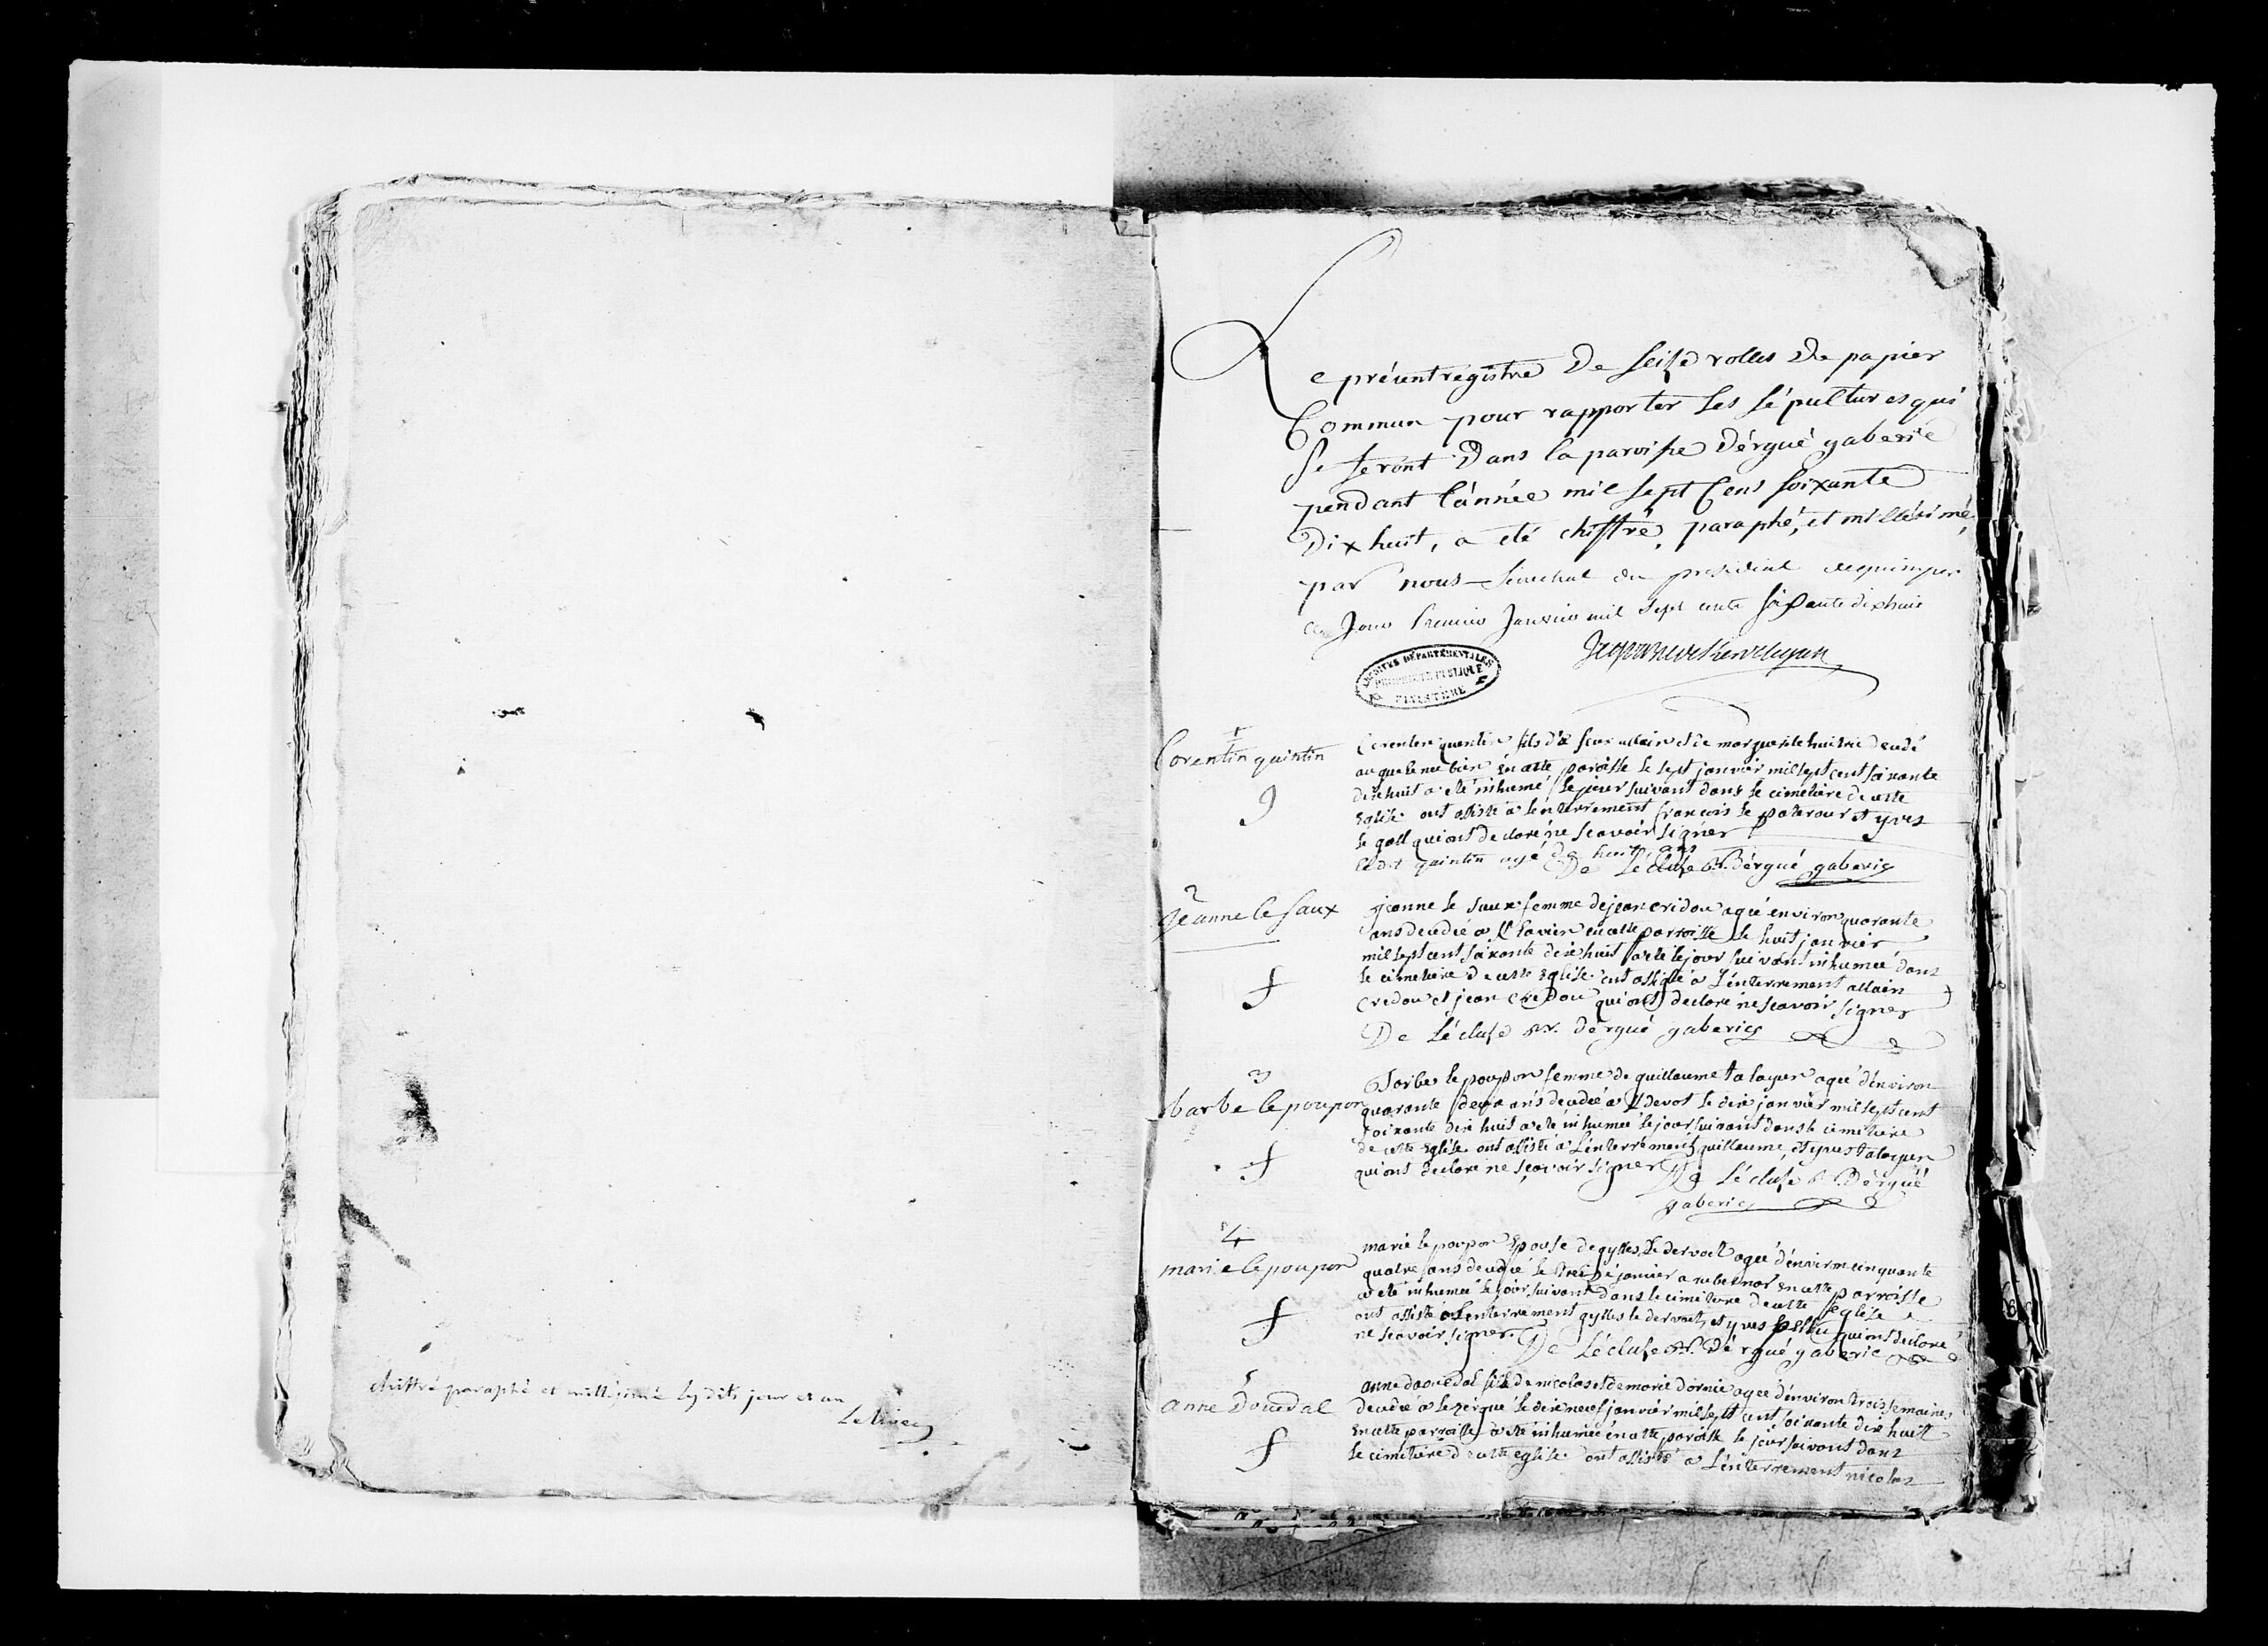 chiffré paraphé et millésimé lesdits jour et an
Le présent registre De seize rolles De papier
Commun pour rapporter les sépultures qui
se feront Dans la paroisse D'érgué gaberic
pendant l'année mil sept Cens soixante
Dix huit, a eté chiffré, paraphé, et millésimé,
par nous Senechal du presidial de quimper
ce Jour premier Janvier mil sept cents soixante dix huit
ARCHIVES DÉPARTEMENTALES
PROPRIÉTÉ PUBLIQUE
FINISTÈRE
1
Corentin quintin
g
Corentin quentin fils de feu allain et de marguerite decedé
au quelennec bien en cette paroisse le sept janvier mil sept cent soixante
dix huit a eté inhumé le jour suivant dans le cimetiere de cette
Eglise ont assisté a l'enterrement francois le paterour et yves
le goll qui ont declaré ne scavoir signer
ledit quintin agé de huit ans
De L'écluse R. D'érgué gaberic
2
jeanne le saux
f
jeanne le saux femme de jean credou agé environ quarante
ans decedée a en cette parroisse le huit janvier
mil sept cent soixante dix huit a eté le jour suivant inhumée dans
le cimetiere de cette Eglise ont assisté a l'enterrement allain
credou et jean credou qui ont declaré ne scavoir signer
De L'écluse R. d'érgué gaberic
3
barbe le poupon
f
Barbe le poupon femme de guillaume talayer agée d'environ
quarante deux ans decedée a le dix janvier mil sept cent
soixante dix huit a eté inhumée le jour suivant dans le cimetiere
de cette Eglise ont assisté a L'enterrement guillaume, et yves talayer
qui ont declaré ne scavoir signer De L'écluse R. D'érgué
gaberic
4
marie le poupon
f
marie le poupon Epouse de gylles le dervoet agée d'environ cinquante
quatre ans decedée le treize janvier a en cette parroisse
a eté inhumée le jour suivant dans le cimetiere de cette Eglise
ont assisté a L'enterrement gylles le dervoet, et yves qui ont declaré
ne scavoir signer. De L'écluse R. D'érgué gaberic
5
anne Douedal
f
anne daouedal fille de nicolas et de marie agée d'environ trois semaines
decedée a le dix neuf janvier mil sept cent soixante dix huit
en cette parroisse a eté inhumée en cette paroisse le jour suivant dans
le cimetiere de cette eglise ont assisté a L'enterrement nicolas